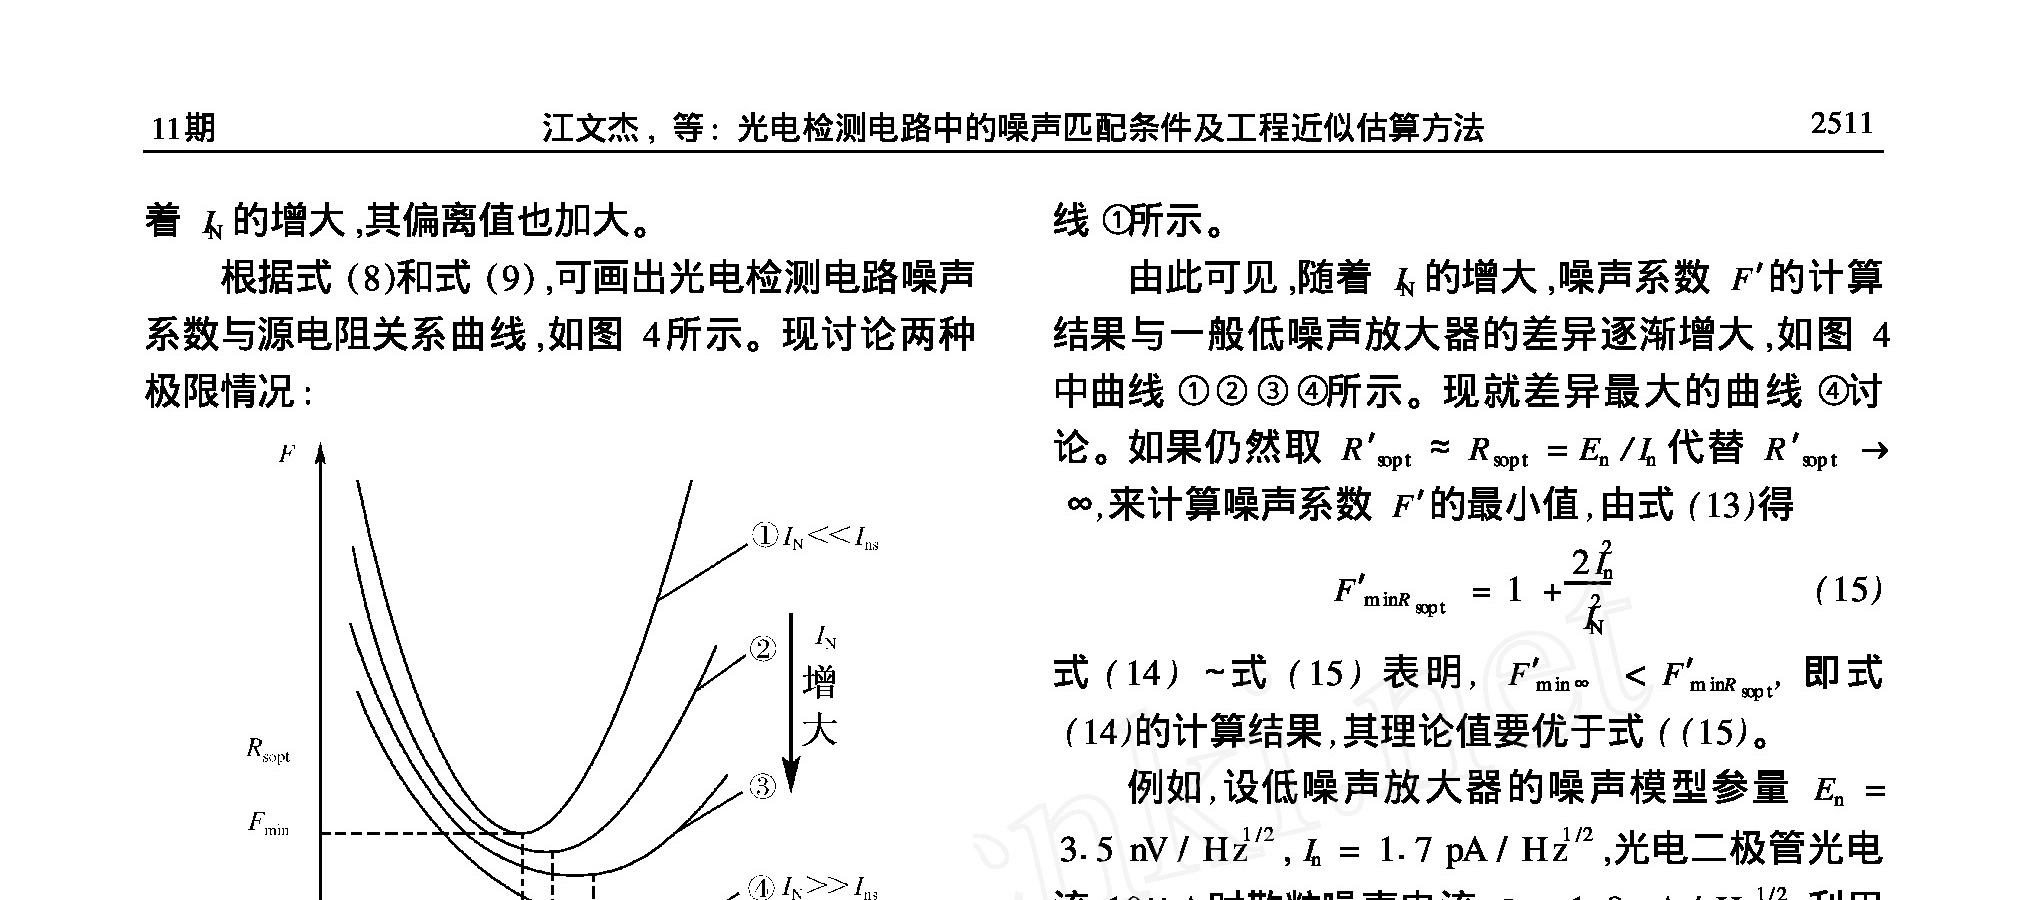 11期 江文杰，等：光电检测电路中的噪声匹配条件及工程近似估算方法 2511
着 I_N 的增大,其偏离值也加大。
根据式 (8)和式 (9) ,可画出光电检测电路噪声
系数与源电阻关系曲线,如图 4所示。现讨论两种
极限情况:
F
① I_N<<I_ns
②
I_N
增
大
R_sopt
③
F_min
④ I_N>>I_ns
线 ①所示。
由此可见,随着 I_N 的增大,噪声系数 F′的计算
结果与一般低噪声放大器的差异逐渐增大,如图 4
中曲线 ①②③④所示。现就差异最大的曲线 ④讨
论。如果仍然取 R′_sopt ≈ R_sopt = E_n / I_n 代替 R′_sopt →
∞,来计算噪声系数 F′的最小值,由式 (13)得
F′_minR_sopt = 1 + 2I_n^2 / I_N^2 (15)
式 (14) ~式 (15) 表明, F′_min∞ < F′_minR_sopt, 即式
(14)的计算结果,其理论值要优于式 ((15)。
例如,设低噪声放大器的噪声模型参量 E_n =
3.5 nV / Hz^1/2, I_n = 1.7 pA / Hz^1/2,光电二极管光电